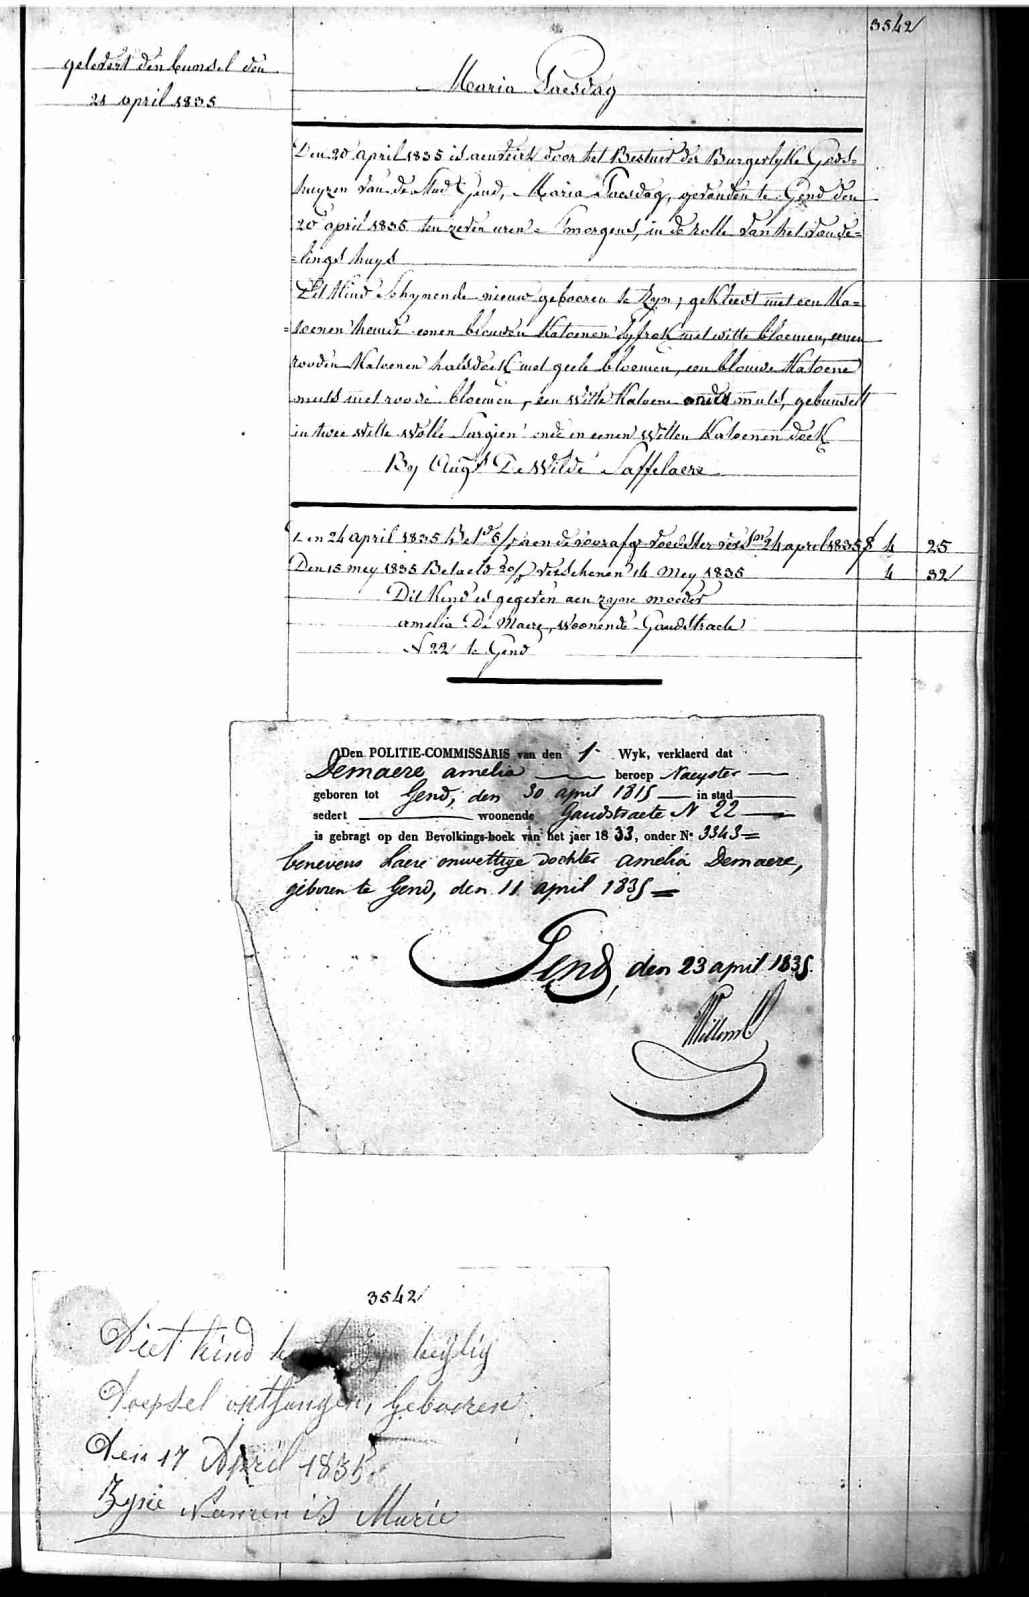 3542
gelevert den bunsel den
21 april 1835
Maria Paesdag
Den 20 april 1835 is aenveird door het Bestuer der Burgerlyke Gods=
huyzen van de Stad Gend, Maria Paesdag, gevonden te Gend den
20 april 1835 ten zeven uren 's morgens, in de rolle van het vonde=
=lings huys
Dit Kind Schynende nieuw gebooren te Zyn, gekleed met een Ka=
=toenen hemde eenen blauwen Katoenen Lyfrok met witte bloemen, eenen
rooden Katoenen halsdoek met geele bloemen, een blauwe Katoene
muts met roode bloemen, een witte Katoene onder muts, gebunselt
in twee witte wolle Sargien ende in eenen Witten Katoenen doek
By Augt De Wilde Saffelaere
Den 24 april 1835 aen de voorafg voedster 24 april 1835 f 4 25
Den 15 mey 1835 Betaeld verschenen 14 Mey 1835 4 32
Dit Kind is gegeven aen zyne moeder
amelia De Maere, woonende Gaudstraete
N 22 te Gend
Den POLITIE-COMMISSARIS van den 1. Wyk, verklaerd dat
Demaere amelia beroep Naeyster
geboren tot Gend, den 30 april 1815 in stad
sedert woonende Gaudstraete N 22
is gebragt op den Bevolkings-boek van het jaer 1833, onder N° 3343=
benevens haere onwettige dochter amelia Demaere,
geboren te Gend, den 11 april 1835=
Gend, den 23 april 1835.
Willems
3542
Diet kind heylig
Doepsel ontfangen, Gebooren
Den 17 April 1835
Zyne Naemen is Marie